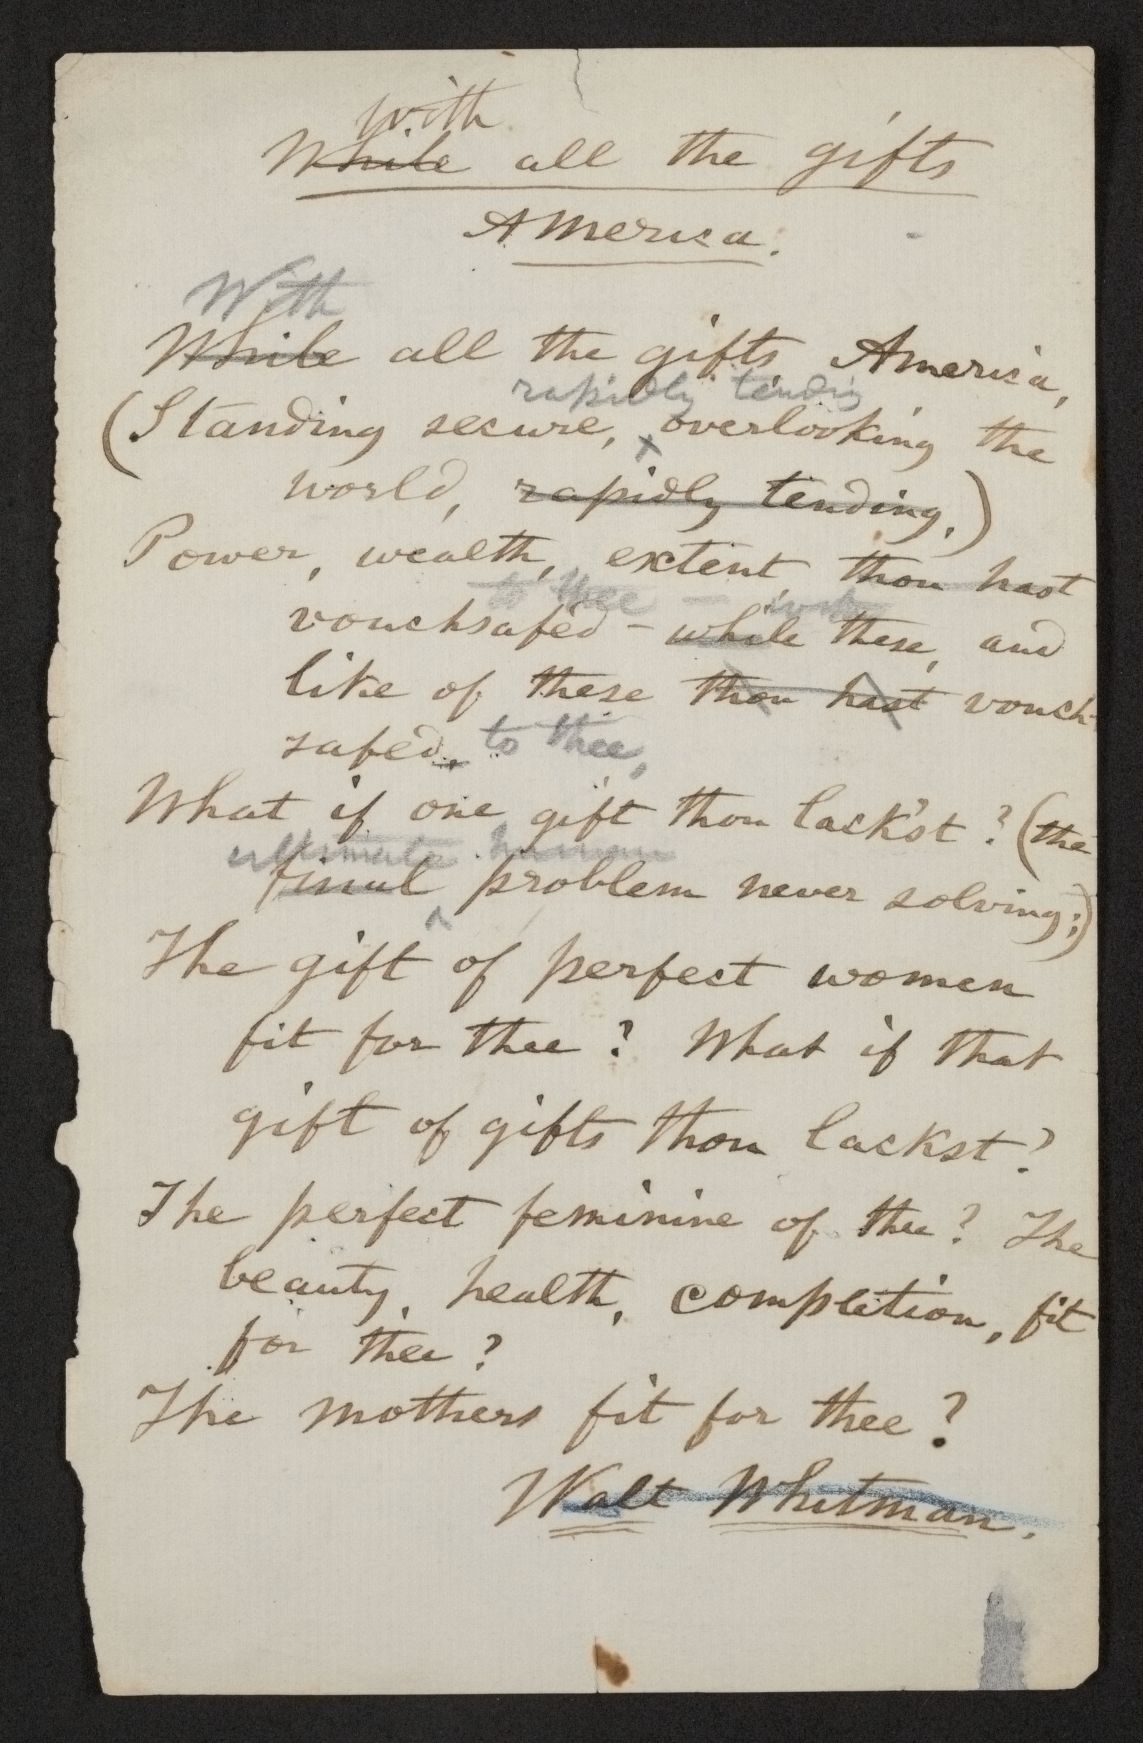 with
While all the gifts
America.
With
While all the gifts America,
rapidly tending
(Standing secure, overlooking the
world, rapidly tending.)
Power, wealth, extent, thou hast
to thee — with
vouchsafed - while these, and
like of these thou hast vouch-
safed, to thee,
What if one gift thou lack'st? (the
ultimate human
final problem never solving;)
The gift of perfect women
fit for thee? What if that
gift of gifts thou lackst?
The perfect feminine of thee? The
beauty, health, completion, fit
for thee?
The mothers fit for thee?
Walt Whitman.